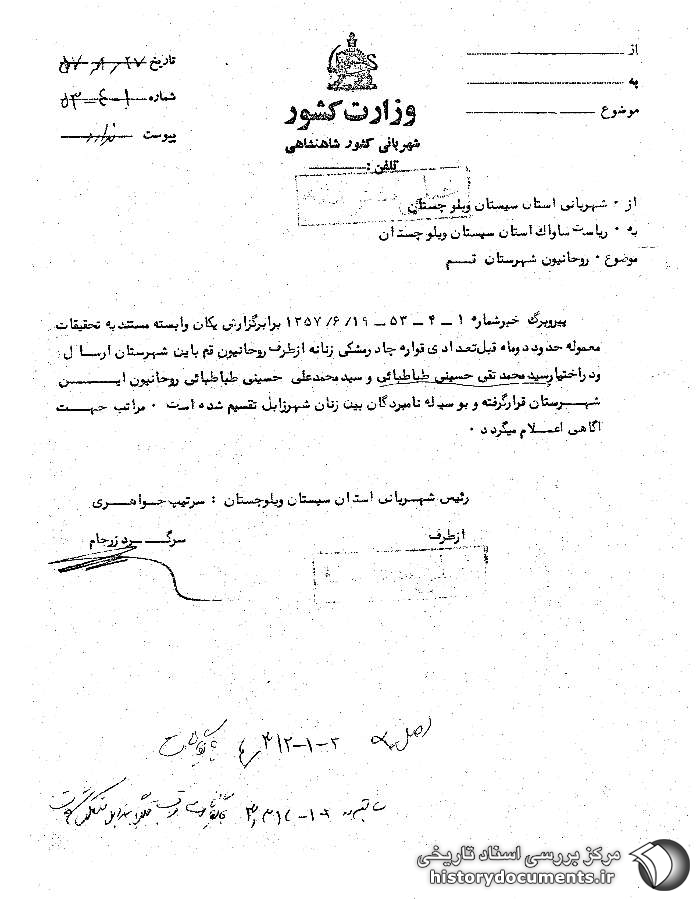 از
به
موضوع
وزارت کشور
شهربانی کشور شاهنشاهی
تلفن:
تاریخ
شماره ۱-۴-۵۳
پیوست ندارد
از ۰ شهربانی استان سیستان وبلوچستان
به ۰ ریاست ساواک استان سیستان وبلوچستان
موضوع ۰ روحانیون شهرستان قم
پیروبرگ خبرشماره ۱ – ۴ – ۵۳ – ۱۹/۶/۱۳۵۷ برابرگزارش یکان وابسته مستندبه تحقیقات
معموله حدود دوماه قبل تعدادی قواره چادرمشکی زنانه ازطرف روحانیون قم باین شهرستان ارسال
ودراختیارسیدمحمدتقی حسینی طباطبائی و سیدمحمدعلی حسینی طباطبائی روحانیون ایـــن
شهرستان قرارگرفته و بوسیله نامبردگان بین زنان شهرزابل تقسیم شده است ۰ مراتب جهت
آگاهی اعلام میگردد ۰
رئیس شهربانی استان سیستان وبلوچستان : سرتیپ جواهری
ازطرف
سرگرد زرجام
اصل در ۳-۱-۴۱۲
مرکز بررسی اسناد تاریخی
historydocuments.ir